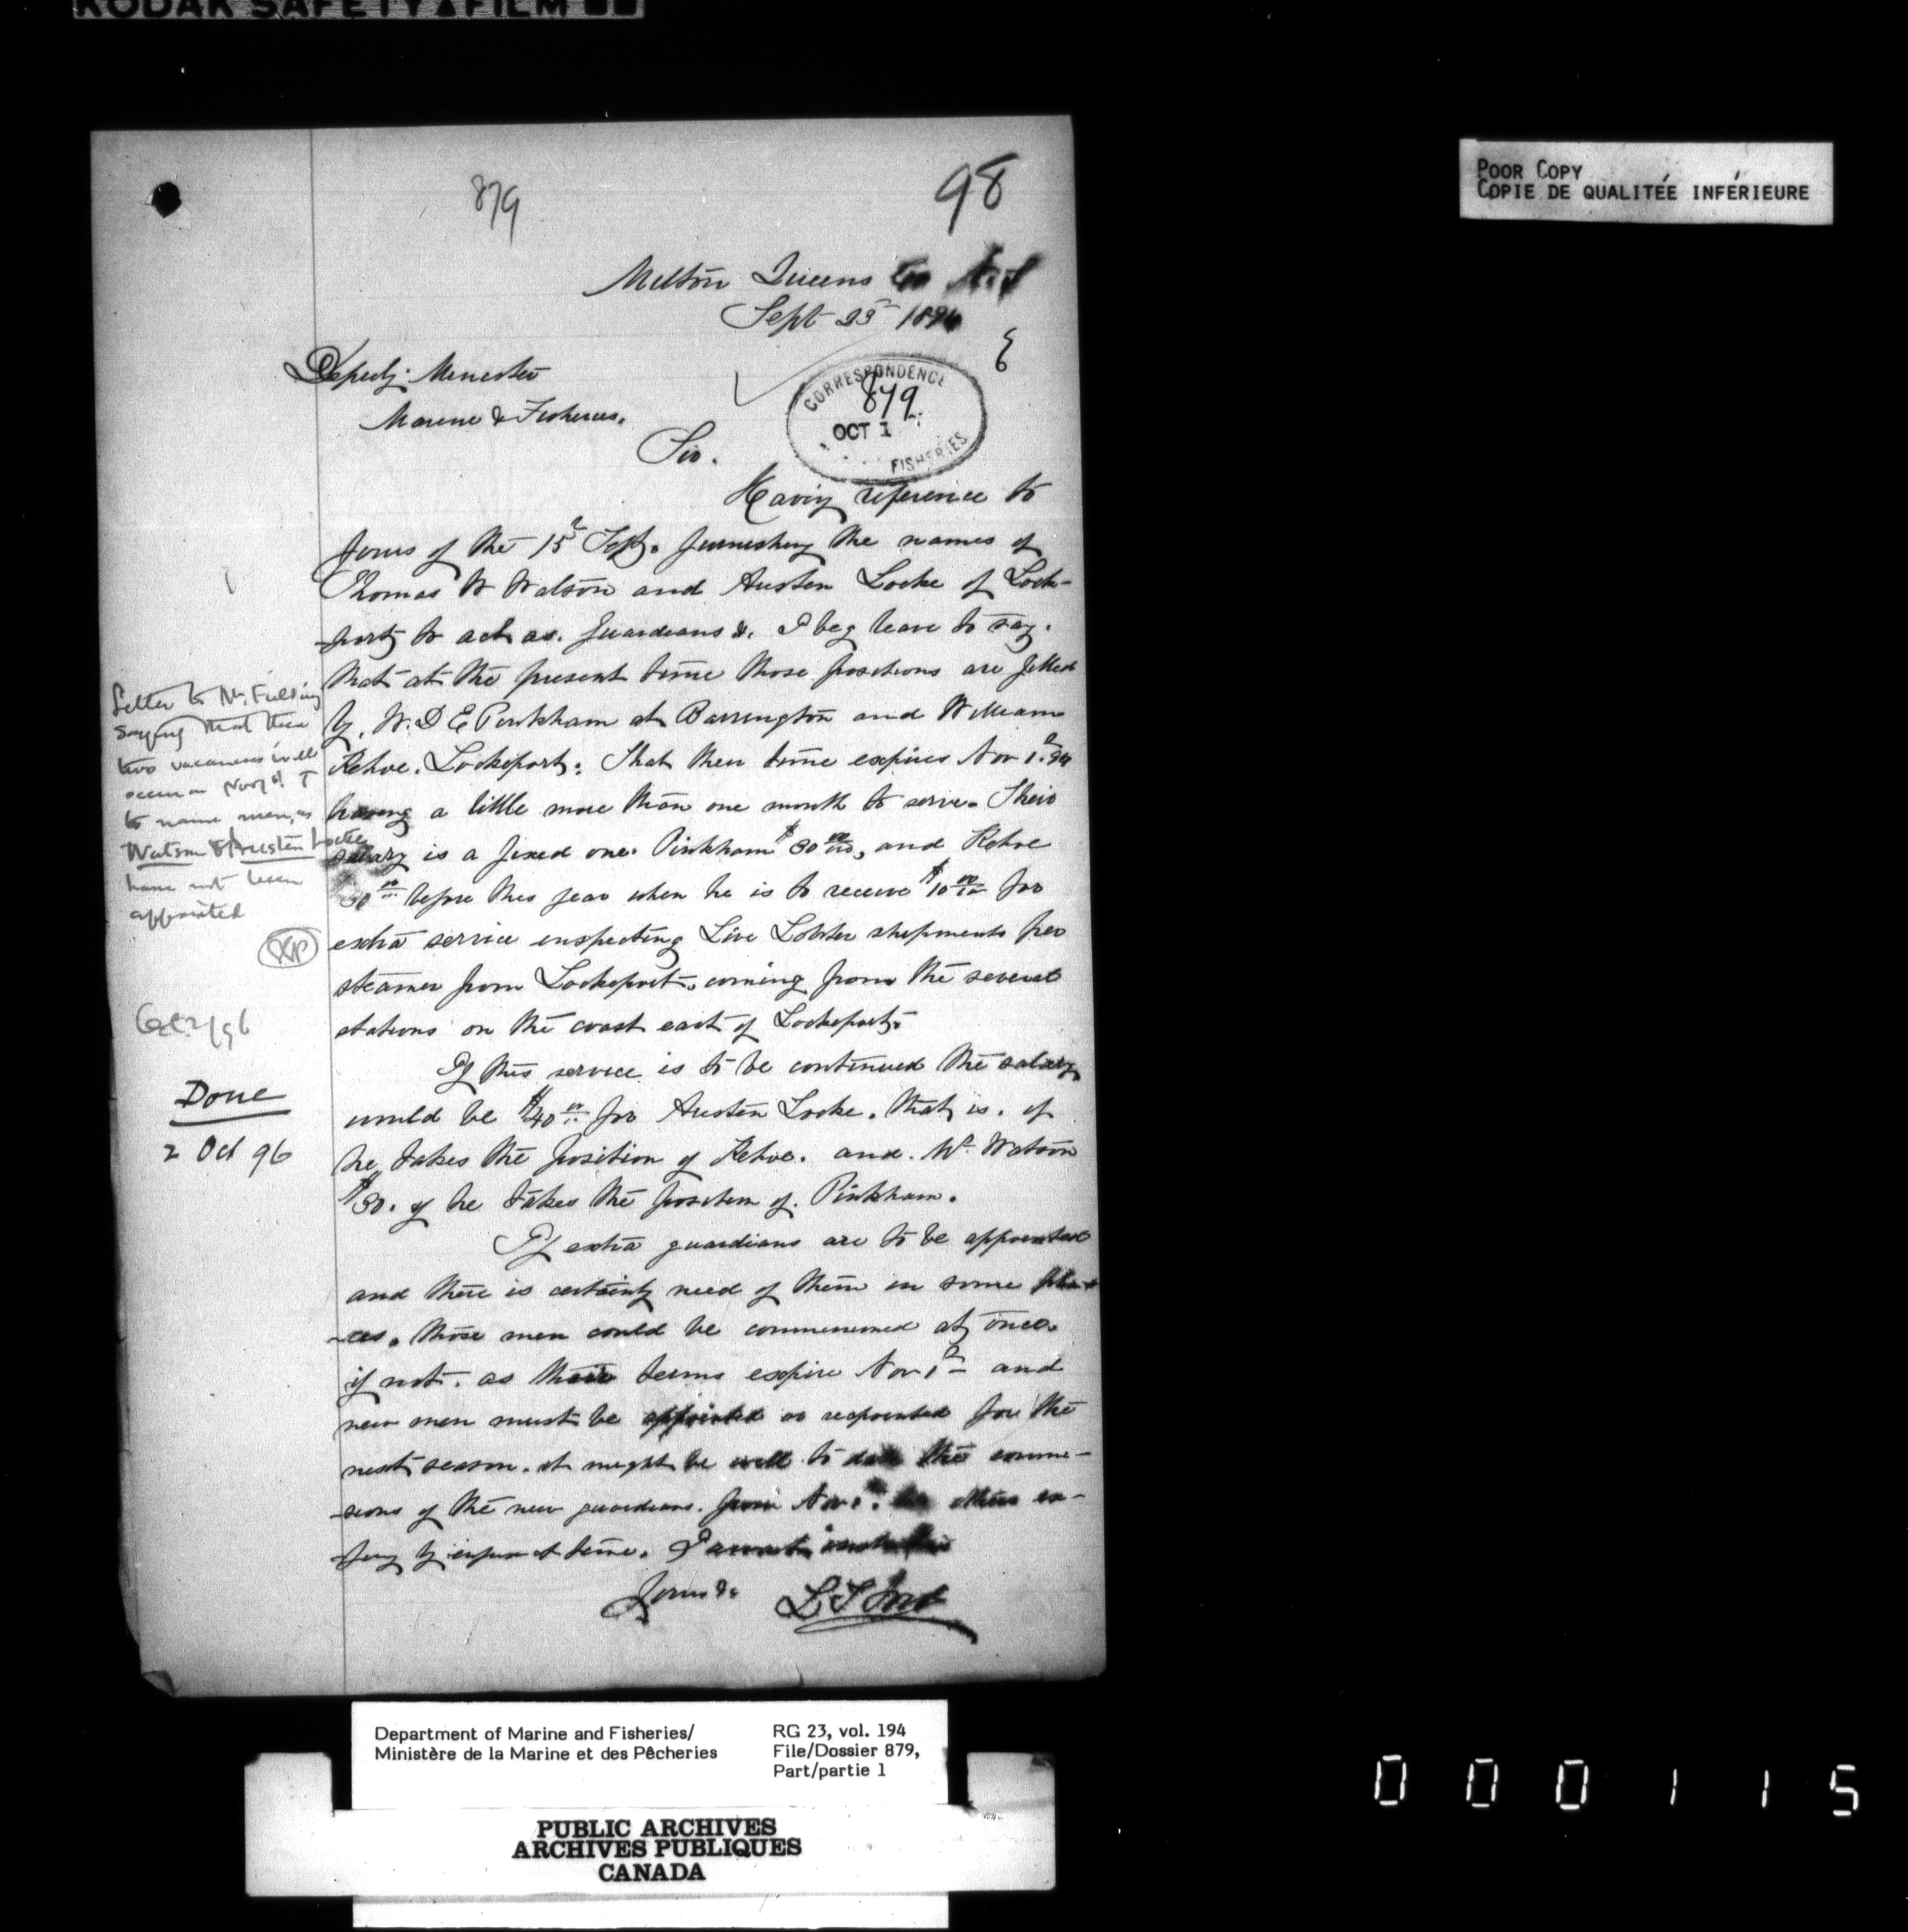 KODAK SAFETY FILM
POOR COPY
COPIE DE QUALITÉE INFÉRIEURE
879
98
Milton Queens Co N.S
Sept 23rd 1896
Deputy Minister
Marine & Fisheries.
CORRESPONDENCE
879
OCT 1
FISHERIES
Sir.
Having reference to
yours of the 15th Sept. furnishing the names of
Thomas W Watson and Austen Locke of Lock-
-port, to act as. Guardians &. I beg leave to say.
that at the present time those positions are filled
by. W. D E Pinkham at Barrington and William
Kehoe. Lockeport. That their time expires Nov 1st 96
having a little more than one month to serve. Their
salary is a fixed one. Pinkham $30 00/100, and Kehoe
30 00 before this year when he is to receive $10 00 for
extra service inspecting Live Lobster shipments per
steamer from Lockeport. coming from the several
stations on the coast east of Lockeport.
If this service is to be continued the salary
would be $40 00 for Austen Locke. that is. if
he takes the position of Kehoe. and. Mr Watson
$30. if he takes the position of. Pinkham.
If extra guardians are to be appointed
and there is certainly need of them in some pla-
-ces. those men could be commissioned at once.
if not. as their terms expire Nov 1st and
new men must be appointed or reapointed for the
next season. it might be well to date the commi-
-sions of the new guardians. from Nov 1. the others ex-
-piry by
time. I await
Yours &c
Letter to Mr. Fielding
saying that these
two vacancies will
occur on Nov 1st &
to name men, as
Watson & Austen Locke
have not been
appointed
Oct 2/96
Done
2 Oct 96
Department of Marine and Fisheries/
Ministère de la Marine et des Pêcheries
RG 23, vol. 194
File/Dossier 879,
Part/partie 1
PUBLIC ARCHIVES
ARCHIVES PUBLIQUES
CANADA
000115